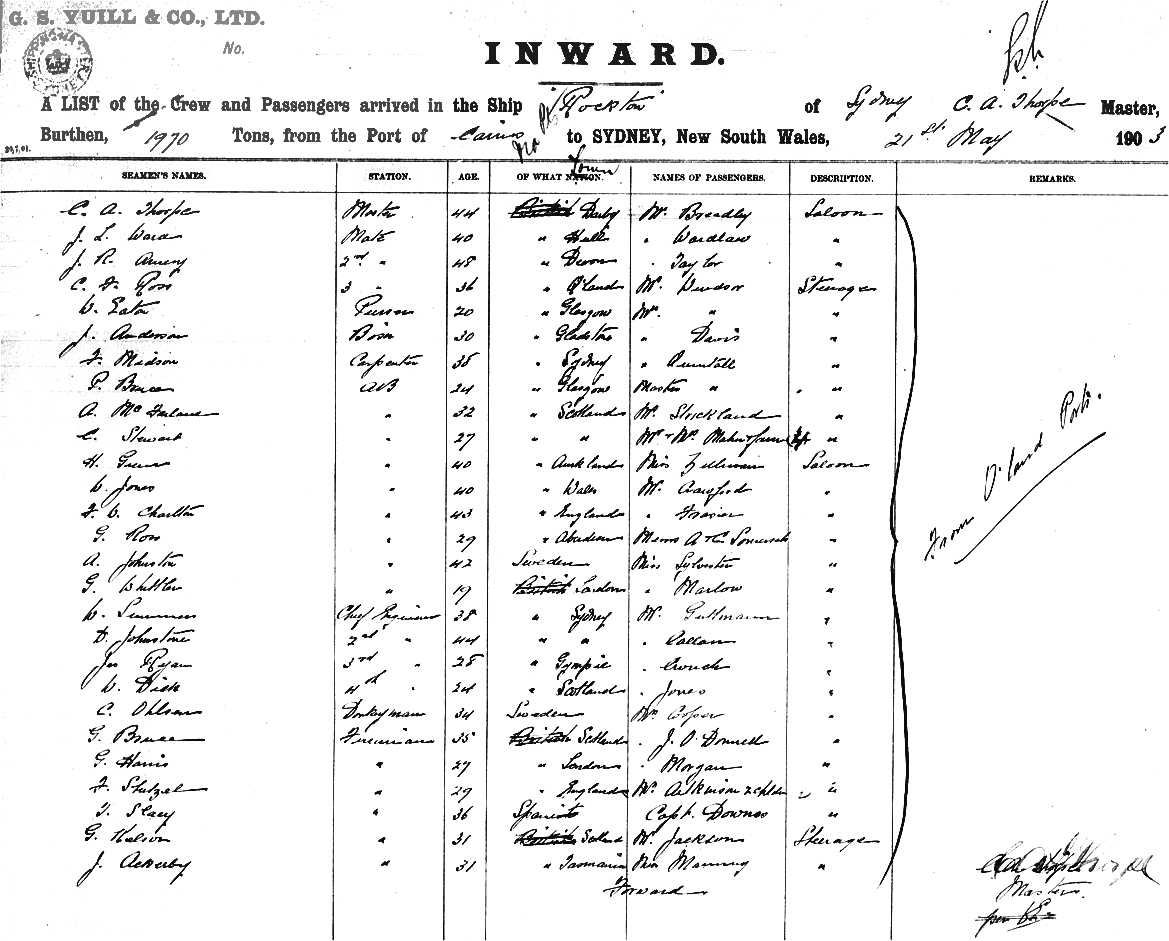 G. S. YUILL & CO., LTD.
No.
INWARD.
A LIST of the Crew and Passengers arrived in the Ship "Rockton" of Sydney C. A. Thorpe Master,
Burthen, 1970 Tons, from the Port of Cairns to SYDNEY, New South Wales, 21st May 1903
Town
SEAMEN'S NAMES. STATION. AGE. OF WHAT NATION. NAMES OF PASSENGERS. DESCRIPTION. REMARKS.
C. A. Thorpe Master 44 British Derby Mr. Breadly Saloon
J. L. Ward Mate 40 " Hull " Wardlaw "
J. R. Amery 2nd " 48 " Devon " Taylor "
C. F. Ross 3 " 36 " Q'land Mr. Windsor Steerage
W. Eaton Purser 20 " Glasgow Mrs. " "
J. Anderson Bosn 30 " Gladstone " Davis "
F. Midson Carpenter 38 " Sydney " "
P. Bruce AB 24 " Glasgow Master " "
A. McFarland " 32 " Scotland Mr. Strickland "
C. Stewart " 27 " " Mr & Mrs "
H. Gunn " 40 " Auckland Miss Saloon
W. Jones " 40 " Wales Mr. Crawford "
F. W. Charlton " 43 " England " Frazier "
G. Ross " 29 " Aberdeen "
A. Johnston " 42 Sweden Miss Sylvester "
G. Whittler " 19 British London " Marlow "
W. Summers Chief Engineer 38 " Sydney Mr. Guttmann "
D. Johnstone 2nd " 44 " " " Callan "
Jas Ryan 3rd " 28 " Gympie " Crouch "
W. Dick 4th " 24 " Scotland " Jones "
C. Ohlsen Donkeyman 34 Sweden Mrs. Cooper "
G. Bruce Fireman 35 British Scotland " J. O'Donnell "
G. Harris " 27 " London " Morgan "
F. Stutzel " 29 " England Mrs. Aitkinson & chldn "
T. Slacy " 36 Spanish Capt. Downes "
G. Nelson " 31 British Scotland Mr. Jackson Steerage
J. Ackerby " 31 " Tasmania Miss Manning "
Forward
From Q'land Ports.
C. A. Thorpe
Master.
per